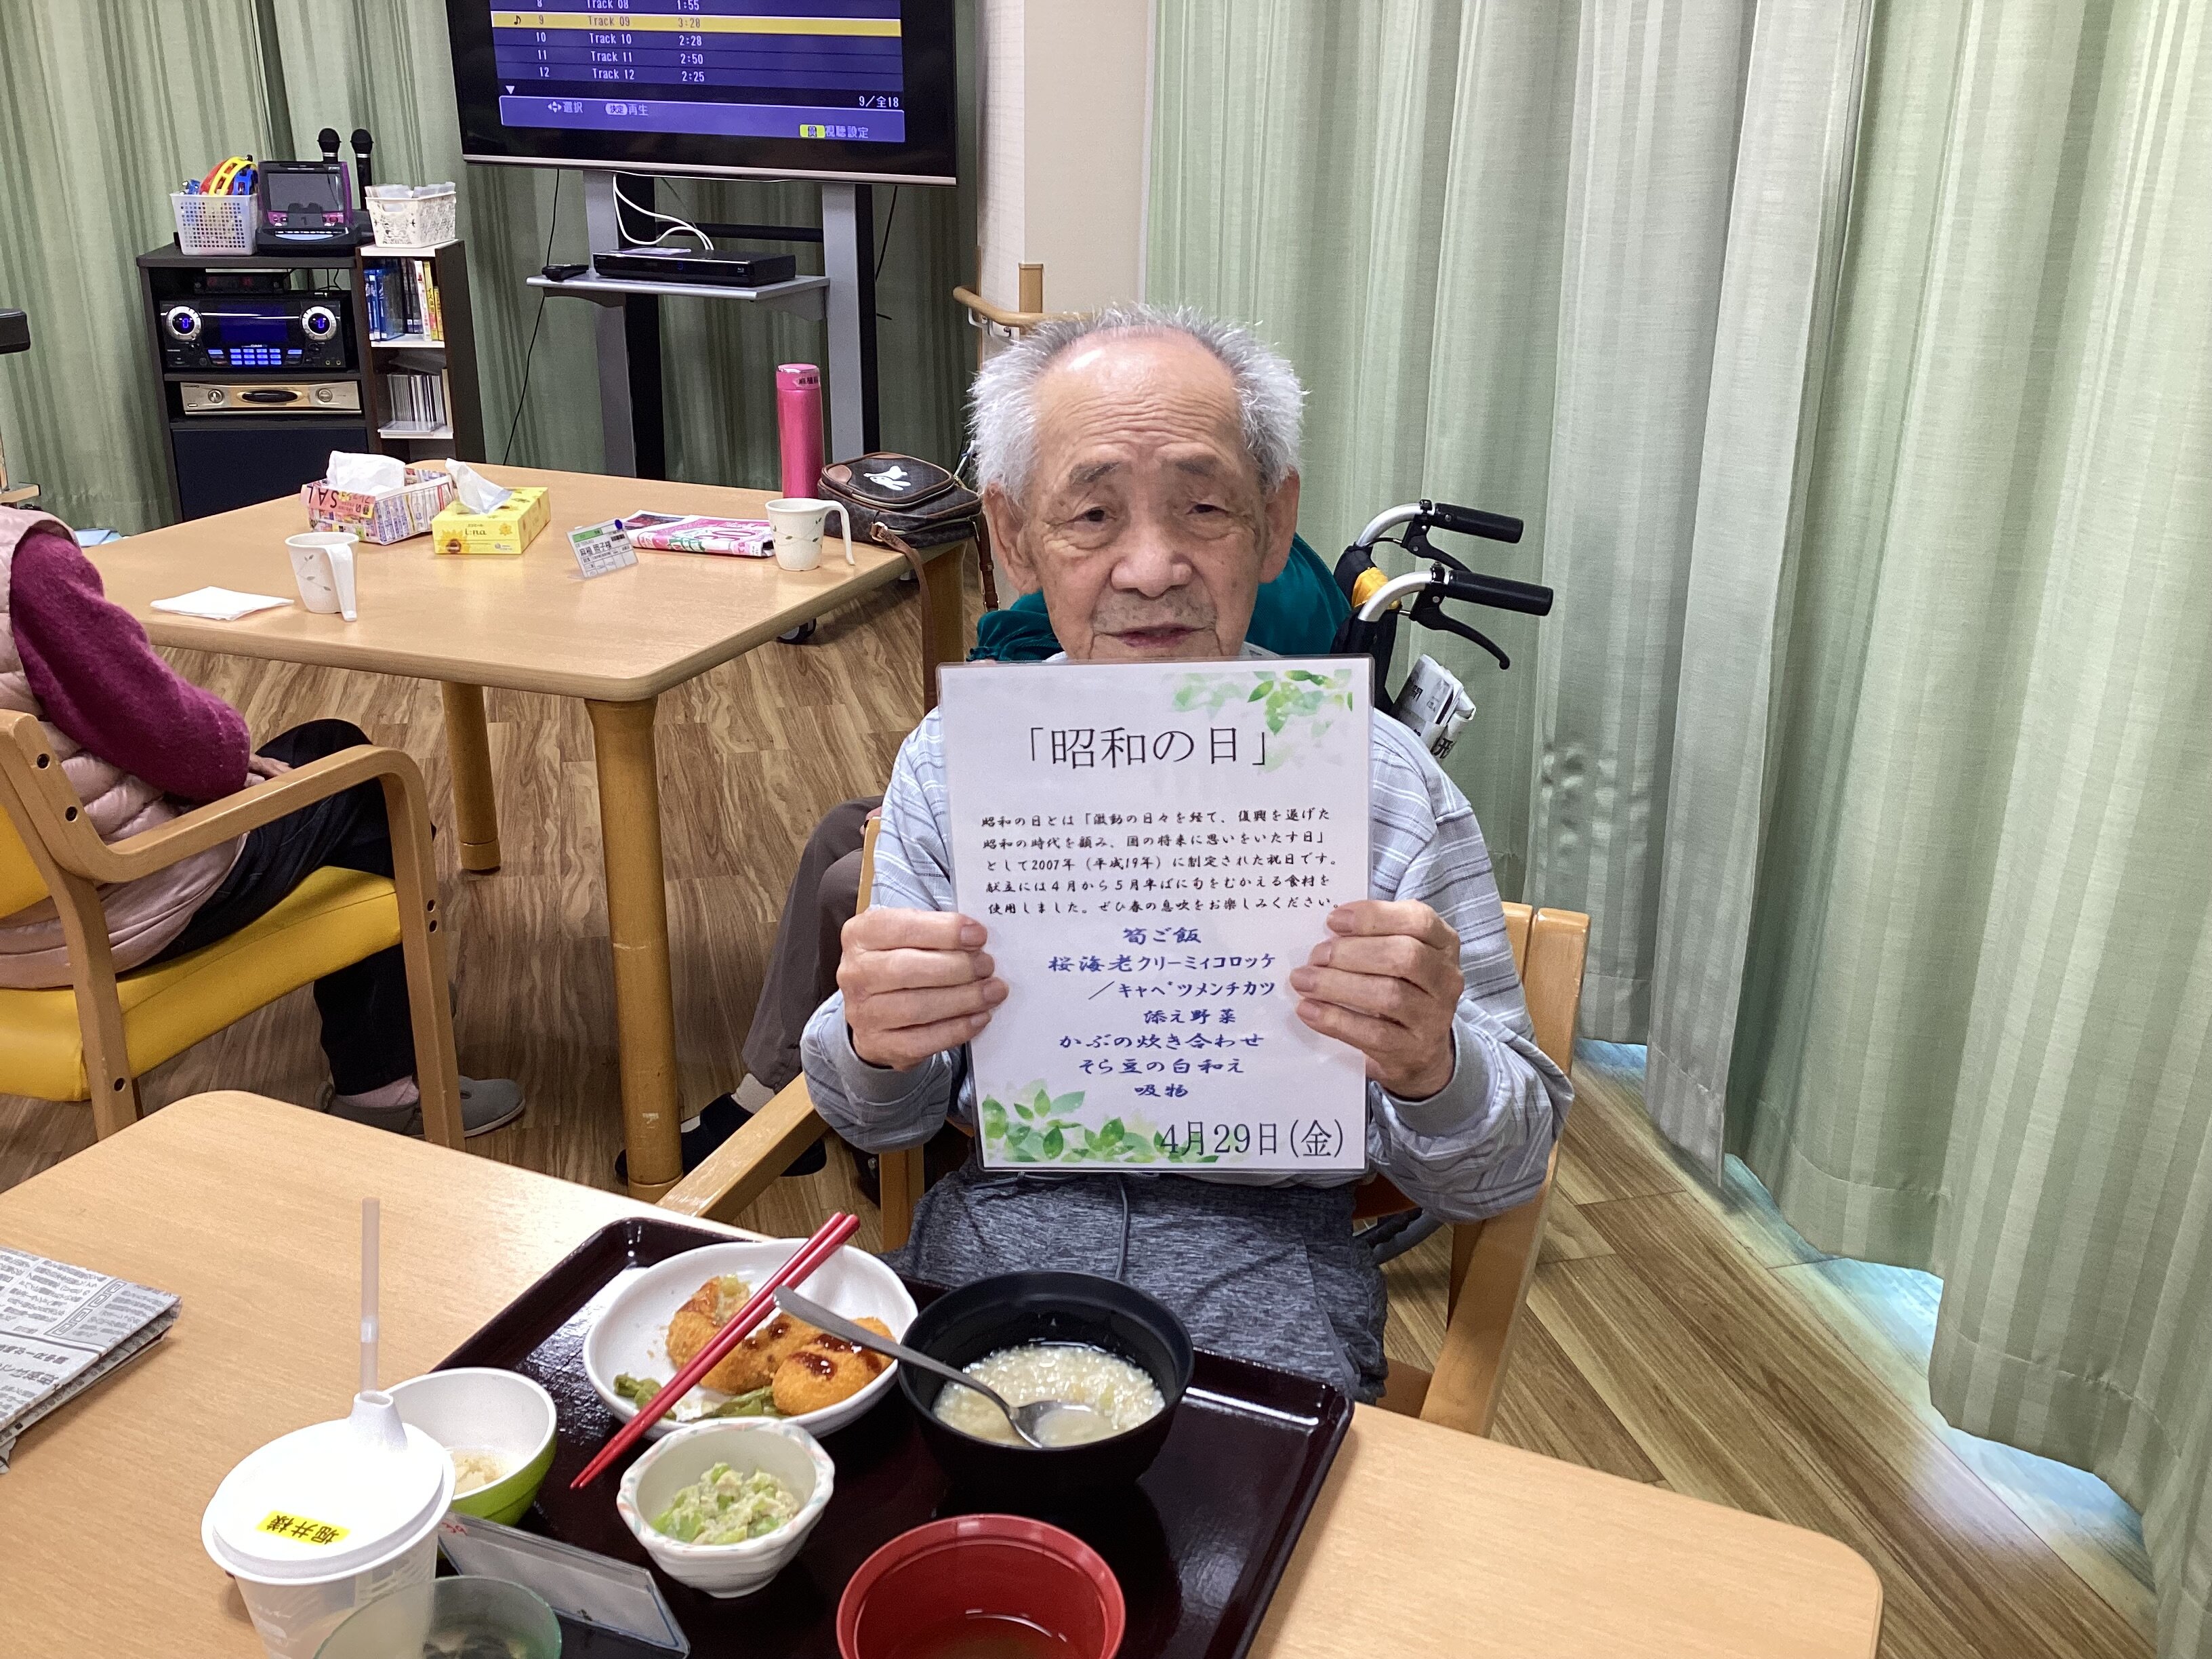 8 Track 08 1:55
♪ 9 Track 09 3:20
10 Track 10 2:28
11 Track 11 2:50
12 Track 12 2:25
9/全18
選択 決定 再生
視聴設定
SAL
「昭和の日」
昭和の日とは「激動の日々を経て、復興を遂げた
昭和の時代を顧み、国の将来に思いをいたす日」
として2007年(平成19年)に制定された祝日です。
献立には4月から5月半ばに旬をむかえる食材を
使用しました。ぜひ春の息吹をお楽しみください。
筍ご飯
桜海老クリーミィコロッケ
/キャベツメンチカツ
添え野菜
かぶの炊き合わせ
そら豆の白和え
吸物
4月29日(金)
堀井様